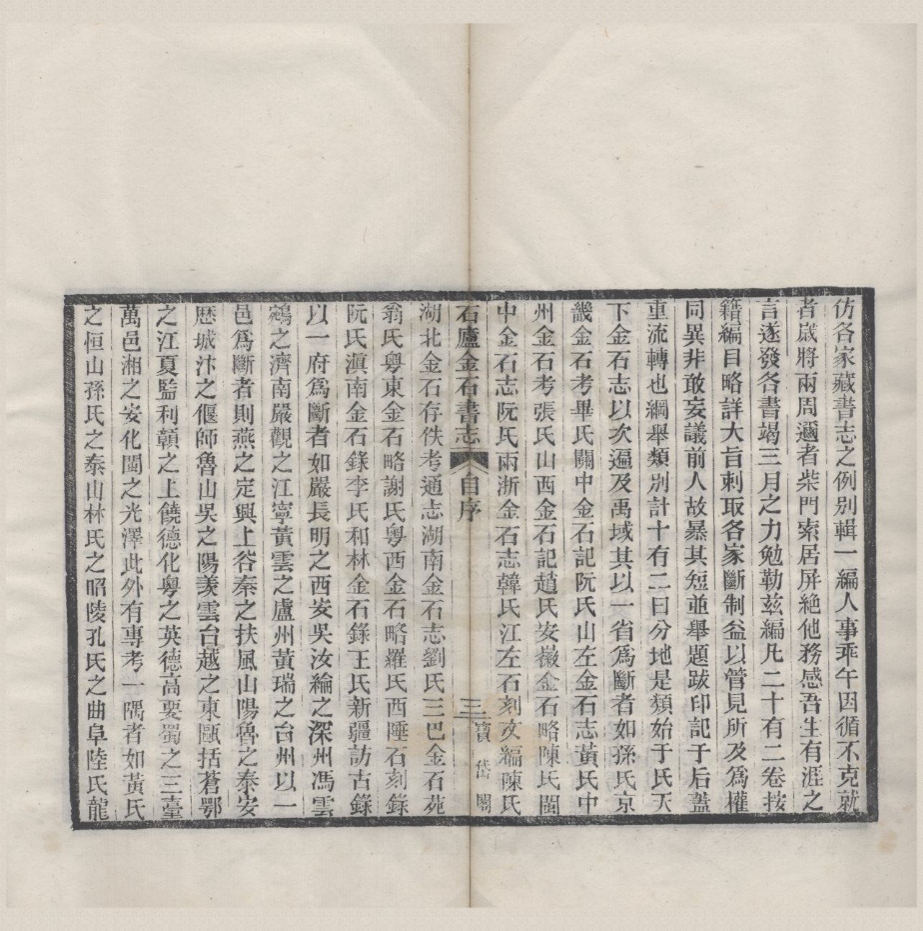 仿各家藏書志之例別輯一編人事乖午因循不克就
者歲將兩周邇者柴門索居屏絕他務感吾生有涯之
言遂發各書竭三月之力勉勒茲編凡二十有二卷按
籍編目略詳大旨刺取各家斷制益以管見所及爲權
同異非敢妄議前人故暴其短並舉題跋印記于后蓋
重流轉也綱舉類別計十有二曰分地是類始于氏天
下金石志以次遍及禹域其以一省爲斷者如孫氏京
畿金石考畢氏關中金石記阮氏山左金石志黃氏中
州金石考張氏山西金石記趙氏安徽金石略陳氏閩
中金石志阮氏兩浙金石志韓氏江左石刻文編陳氏
石廬金石書志 自序 三 寶岱閣
湖北金石存佚考通志湖南金石志劉氏三巴金石苑
翁氏粵東金石略謝氏粵西金石略羅氏西陲石刻錄
阮氏滇南金石錄李氏和林金石錄王氏新疆訪古錄
以一府爲斷者如嚴長明之西安吳汝綸之深州馮雲
鵷之濟南嚴觀之江寧黃雲之廬州黃瑞之台州以一
邑爲斷者則燕之定興上谷秦之扶風山陽魯之泰安
歷城汴之偃師魯山吳之陽羨雲台越之東甌括蒼鄂
之江夏監利贛之上饒德化粵之英德高要蜀之三臺
萬邑湘之安化閩之光澤此外有專考一隅者如黃氏
之恒山孫氏之泰山林氏之昭陵孔氏之曲阜陸氏龍